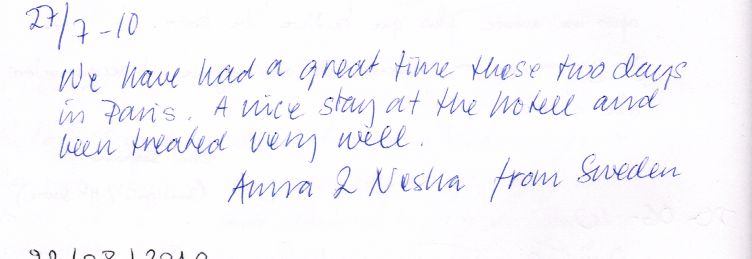 27/7-10
We have had a great time these two days
in Paris. A nice stay at the hotell and
been treated very well.
Anna & Nesha from Sweden